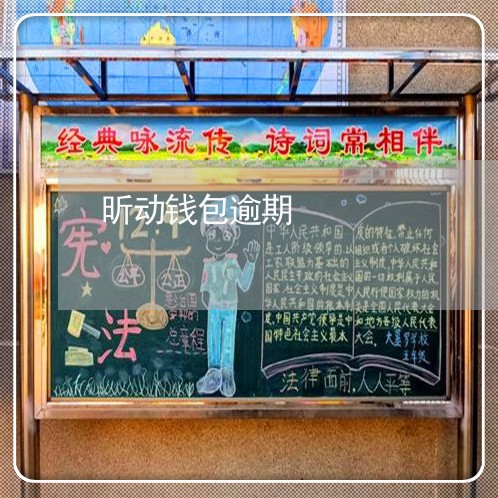 经典咏流传 诗词常相伴
昕动钱包逾期
宪法
12.4
公平
公正
总章程
中华人民共和国
是工人阶级领导的,以
工农联盟为基础的
人民民主专政的社会主义
国家,社会主义制度是中
华人民共和国的根本制
度,中国共产党领导是中
国特色社会主义最本
质的特征,禁止任何
组织或者个人破坏社会
主义制度,中华人民共和
国的一切权利属于人民,
人民行使国家权力的机
关是全国人民代表大会
和地方各级人民代表
大会。
五年级
法律面前,人人平等